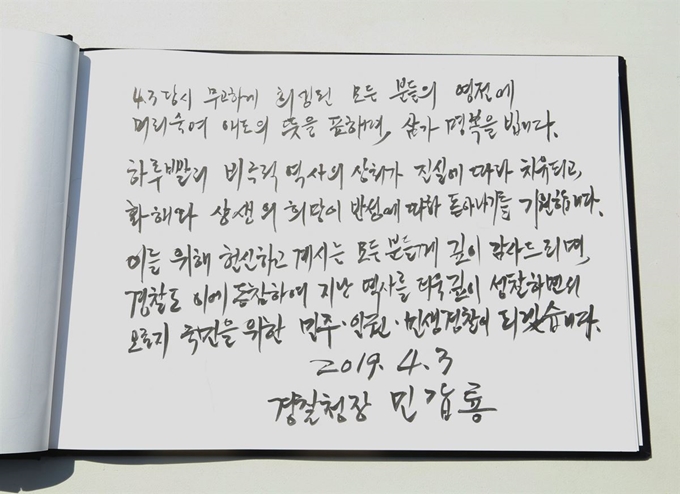 4.3 당시 무고하게 희생된 모든 분들의 영전에
머리숙여 애도의 뜻을 표하며, 삼가 명복을 빕니다.
하루빨리 비극적 역사의 상처가 진실에 따라 치유되고,
화해와 상생의 희망이 반성에 따라 돋아나기를 기원합니다.
이를 위해 헌신하고 계시는 모든 분들께 깊이 감사드리며,
경찰도 이에 동참하여 지난 역사를 더욱 깊이 성찰하면서
오로지 국민을 위한 민주·인권·민생경찰이 되겠습니다.
2019. 4. 3
경찰청장 민갑룡